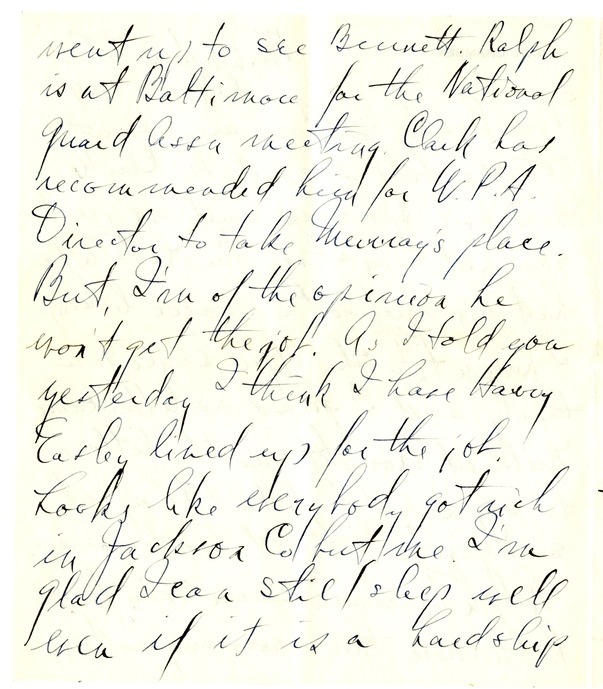 went up to see Bennett. Ralph
is at Baltimore for the National
Guard Assn meeting. Clark has
recommended him for W.P.A.
Director to take Murray's place.
But, I'm of the opinion he
won't get the job. As I told you
yesterday I think I have Harry
Easley lined up for the job.
Looks like everybody got rich
in Jackson Co but me. I'm
glad I can still sleep well
even if it is a hardship